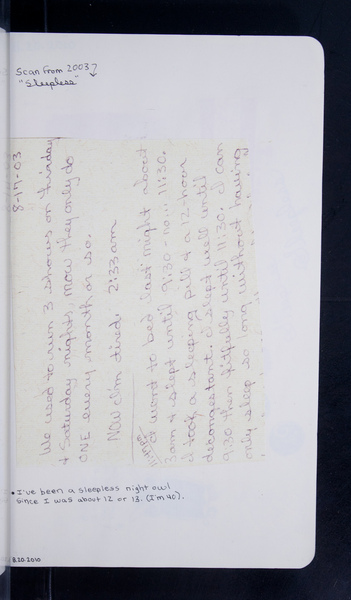 Scan from 2003?
"Sleepless"
8-17-03
We used to run 3 shows on Friday
+ Saturday nights, now they only do
ONE every month or so.
Now I'm tired. 2:33am
I went to bed last night about
3am + slept until 9:30 - now 11:30.
I took a sleeping pill + a 12-hour
decongestant. I slept well until
9:30 then fitfully until 11:30. I can
only sleep so long without having
• I've been a sleepless night owl
since I was about 12 or 13. (I'm 40).
8.20.2010